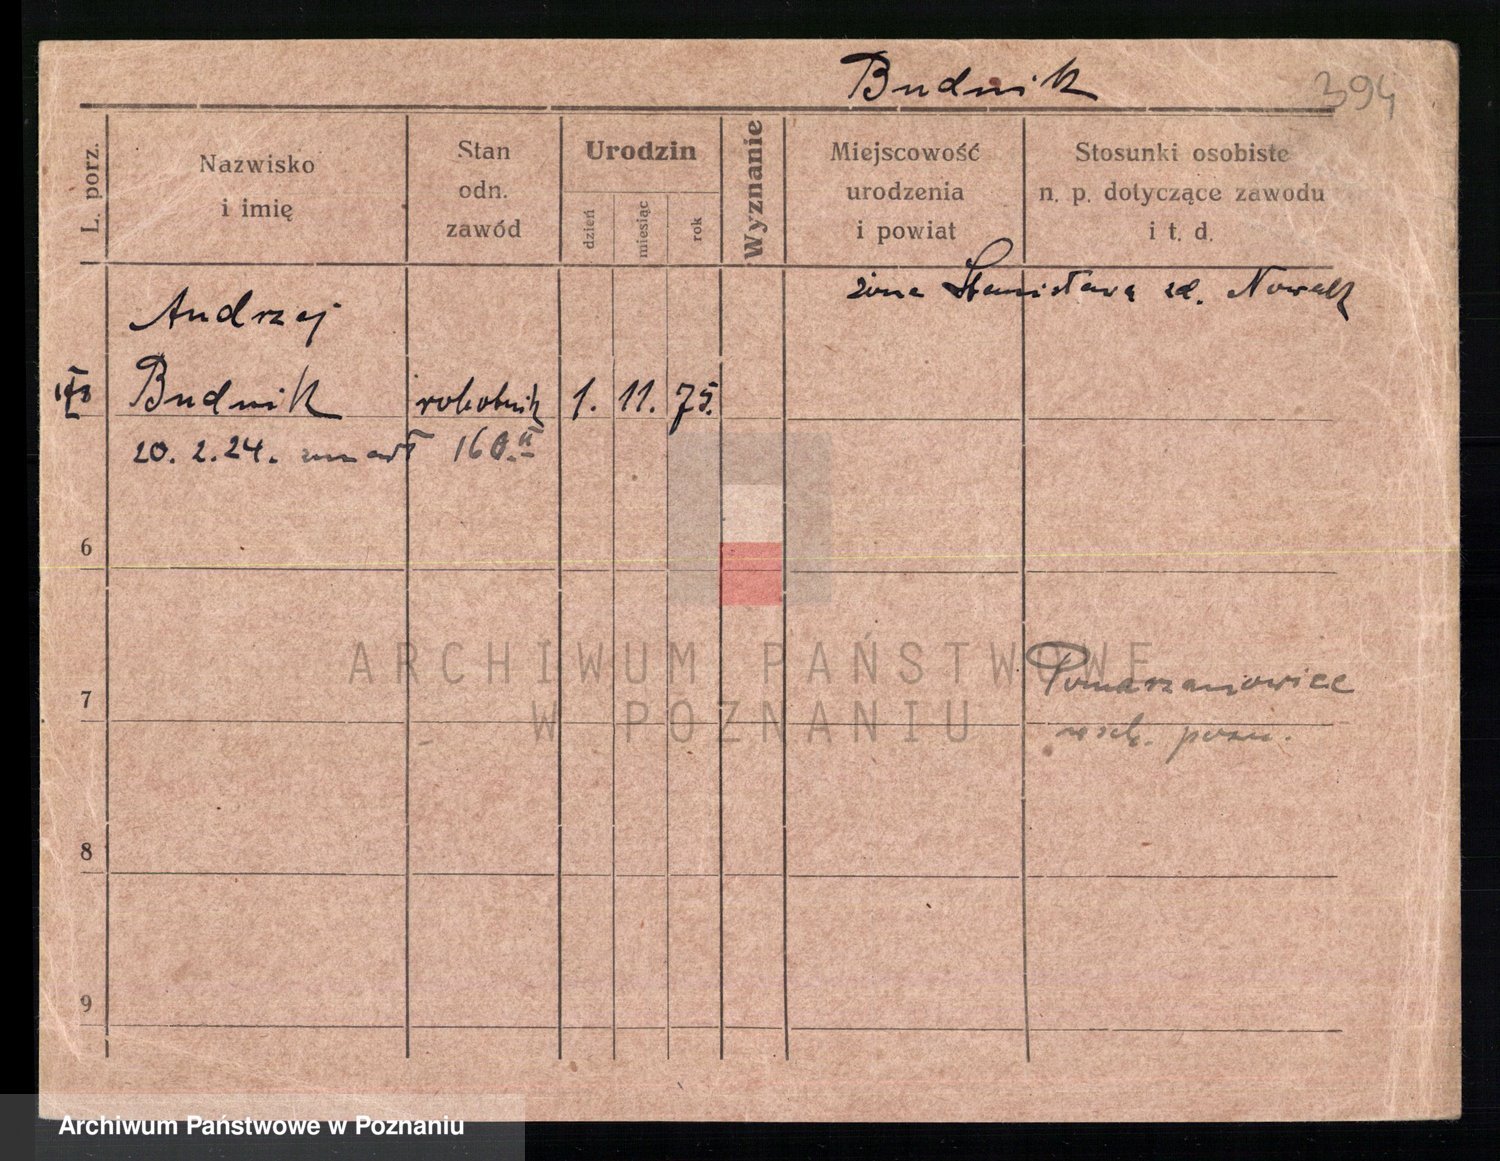 Budnik
394
L. porz.
Nazwisko
i imię
Stan
odn.
zawód
Urodzin
dzień
miesiąc
rok
Wyznanie
Miejscowość
urodzenia
i powiat
Stosunki osobiste
n. p. dotyczące zawodu
i t. d.
żona Stanisława zd. Nowak
Andrzej
Budnik robotnik 1. 11. 75.
20. 2. 24. zmarł 160.
6
ARCHIWUM PAŃSTWOWE
W POZNANIU
7
Pomarzanowice
8
9
Archiwum Państwowe w Poznaniu